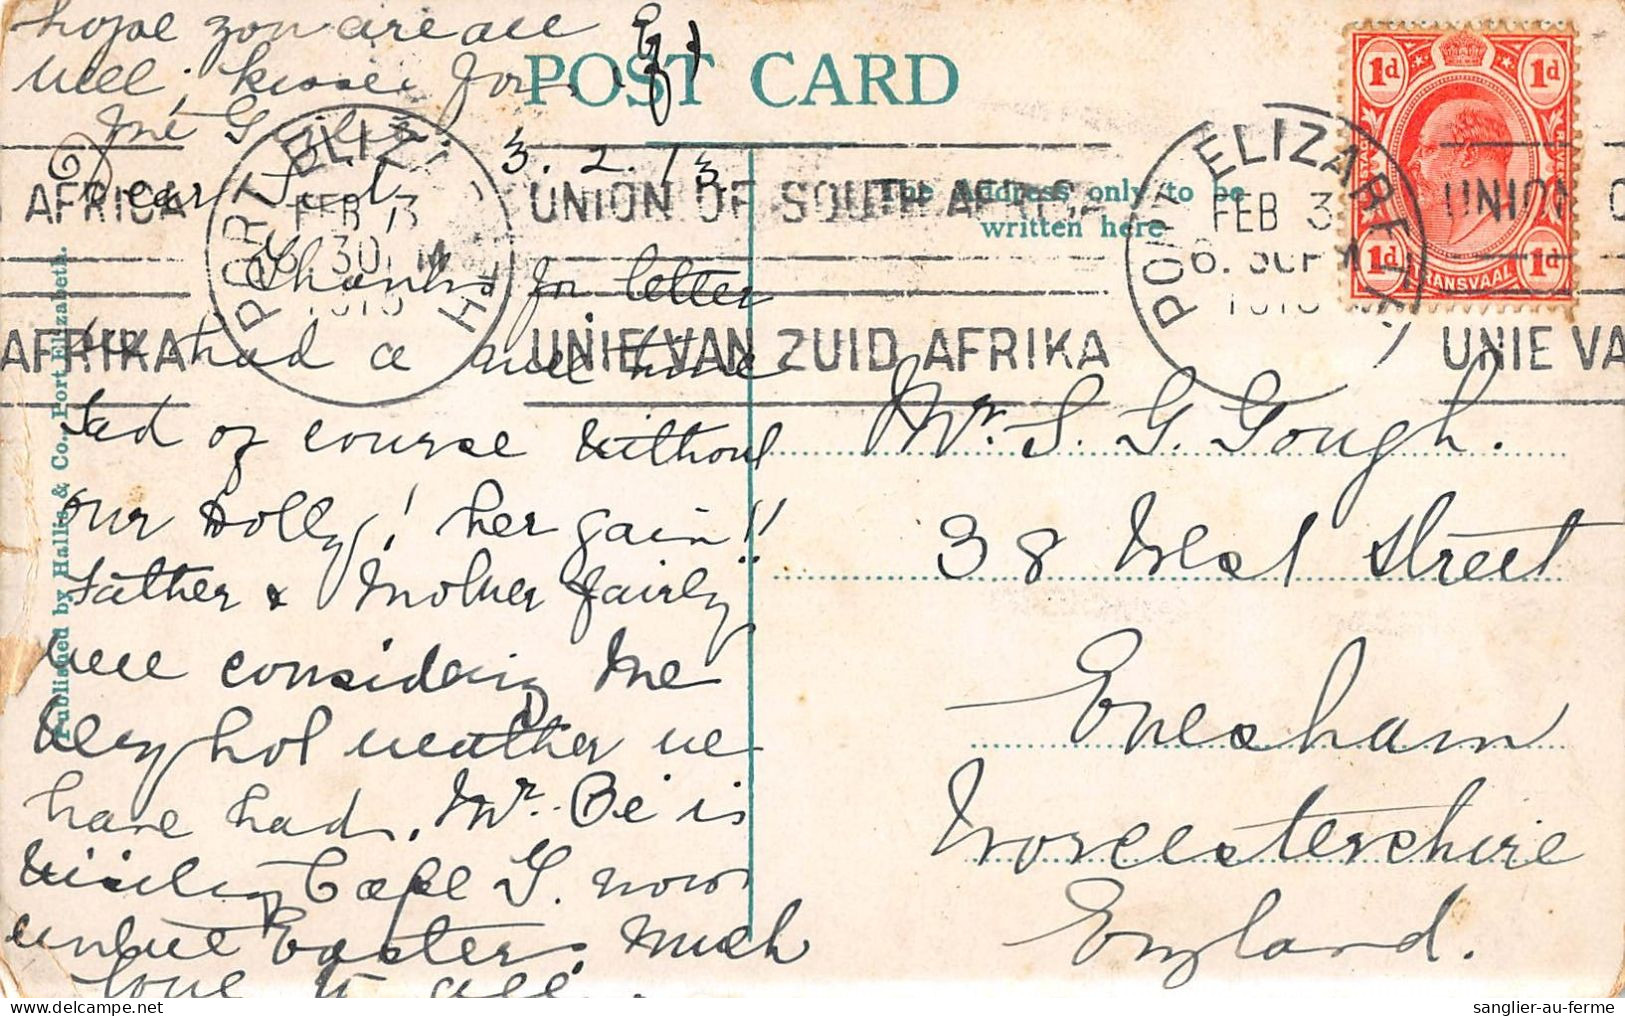 hope you are all
well, kisses for
the Girls
POST CARD
3.2.13
Dear Sid
The address only to be
written here
PORT ELIZABETH
FEB 3
6. 30 PM
1913
UNION OF SOUTH AFRICA
UNIE VAN ZUID AFRIKA
PORT ELIZABETH
FEB 3
6. 30 PM
1913
UNION OF
UNIE VA
AFRICA
AFRIKA
1d 1d
TRANSVAAL
1d 1d
POSTAGE REVENUE
Thanks for letter
we had a nice time
Sad of course without
our Dolly! her gain!!
Father & Mother fairly
well considering the
Very hot weather we
have had. Mr. Be is
visiting Cape T. now
until Easter. Much
love to all.
Mr. S. G. Gough.
38 West Street
Evesham
Worcestershire
England.
Published by Hallis & Co., Port Elizabeth.
sanglier-au-ferme